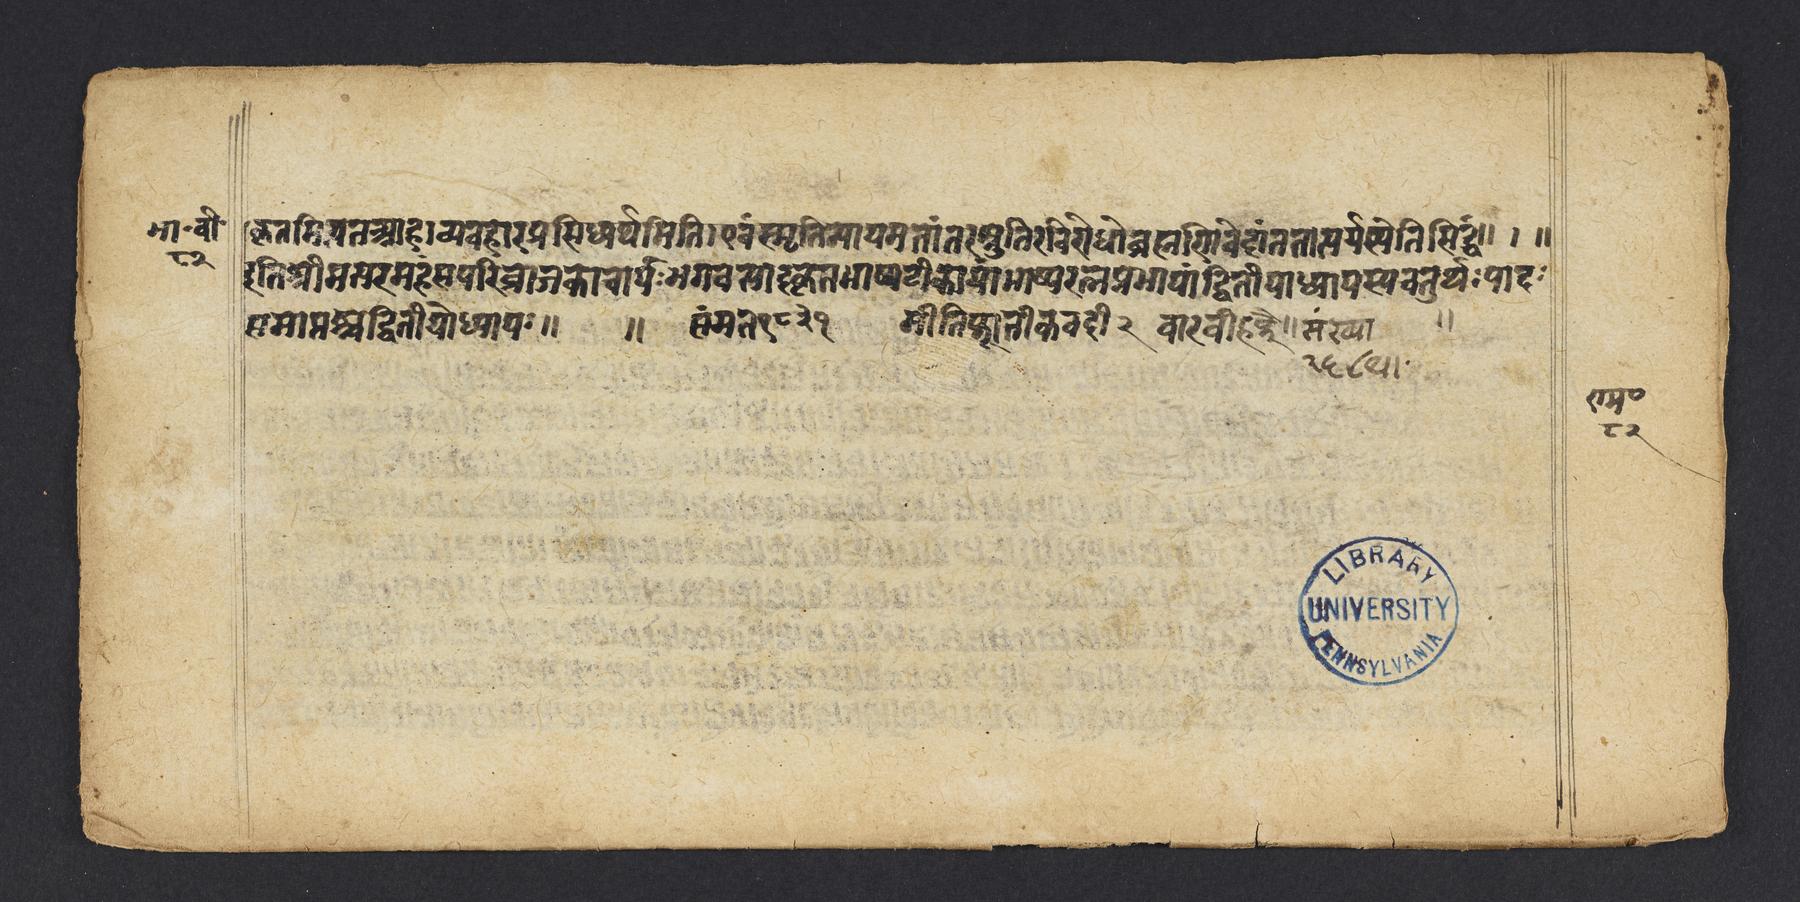 भा॰वी॰
८२
कृतमित्यत आह। व्यवहारप्रसिध्यर्थमिति। एवं स्मृतिन्यायमतांतरश्रुतिरविरोधो ब्रह्मणि वेदांततात्पर्यस्येति सिद्धं॥ । ॥
इतिश्रीमत्परमहंसपरिव्राजकाचार्यःभगवत्पादकृतभाष्यटीकायां भाष्यरत्नप्रभायां द्वितीयाध्यायस्य चतुर्थः पादः
समाप्तश्च द्वितीयोध्यायः॥ ॥ संमत १८३१ मीति कातीक वदी २ वार वी ॥ संख्या ॥
२६८५।
राम॰
८२
LIBRARY
UNIVERSITY
PENNSYLVANIA